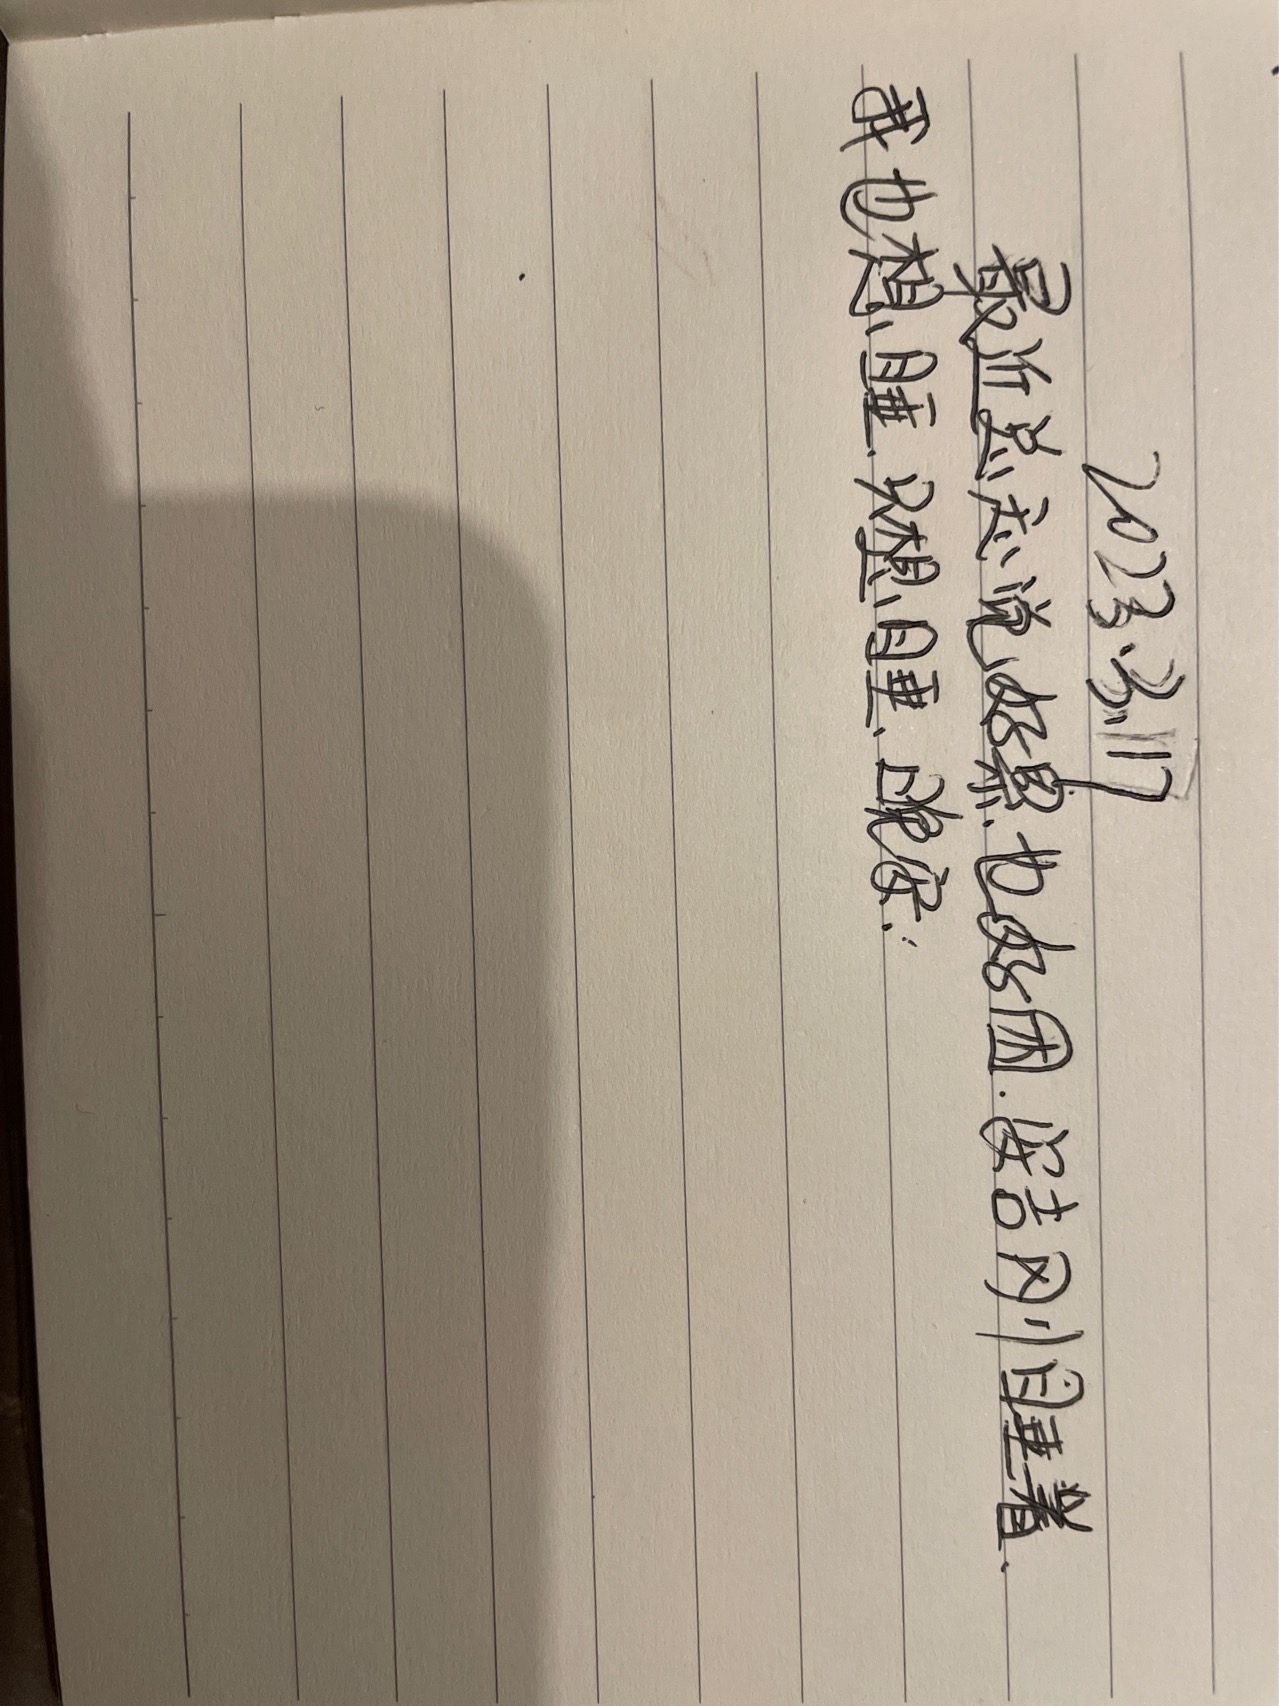 2023.3.17
最近总忘说好累.也好困.安吉刚睡着.
我也想睡.只想睡.晚安.